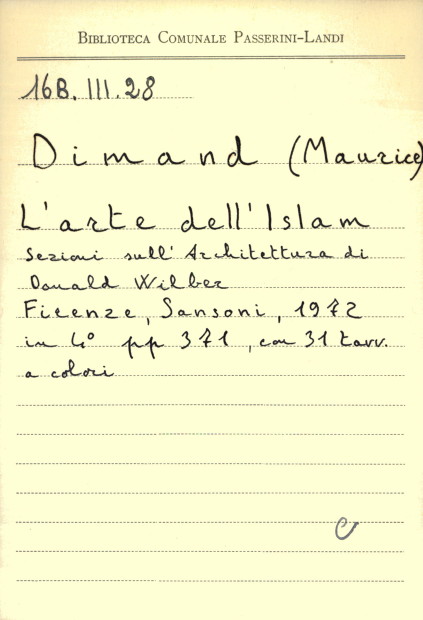 BIBLIOTECA COMUNALE PASSERINI-LANDI
16B. III. 28
Dimand (Maurice)
L'arte dell'Islam
Sezioni sull'Architettura di
Donald Wilber
Firenze, Sansoni, 1972
in 4° pp 371, con 31 tavv.
a colori
C